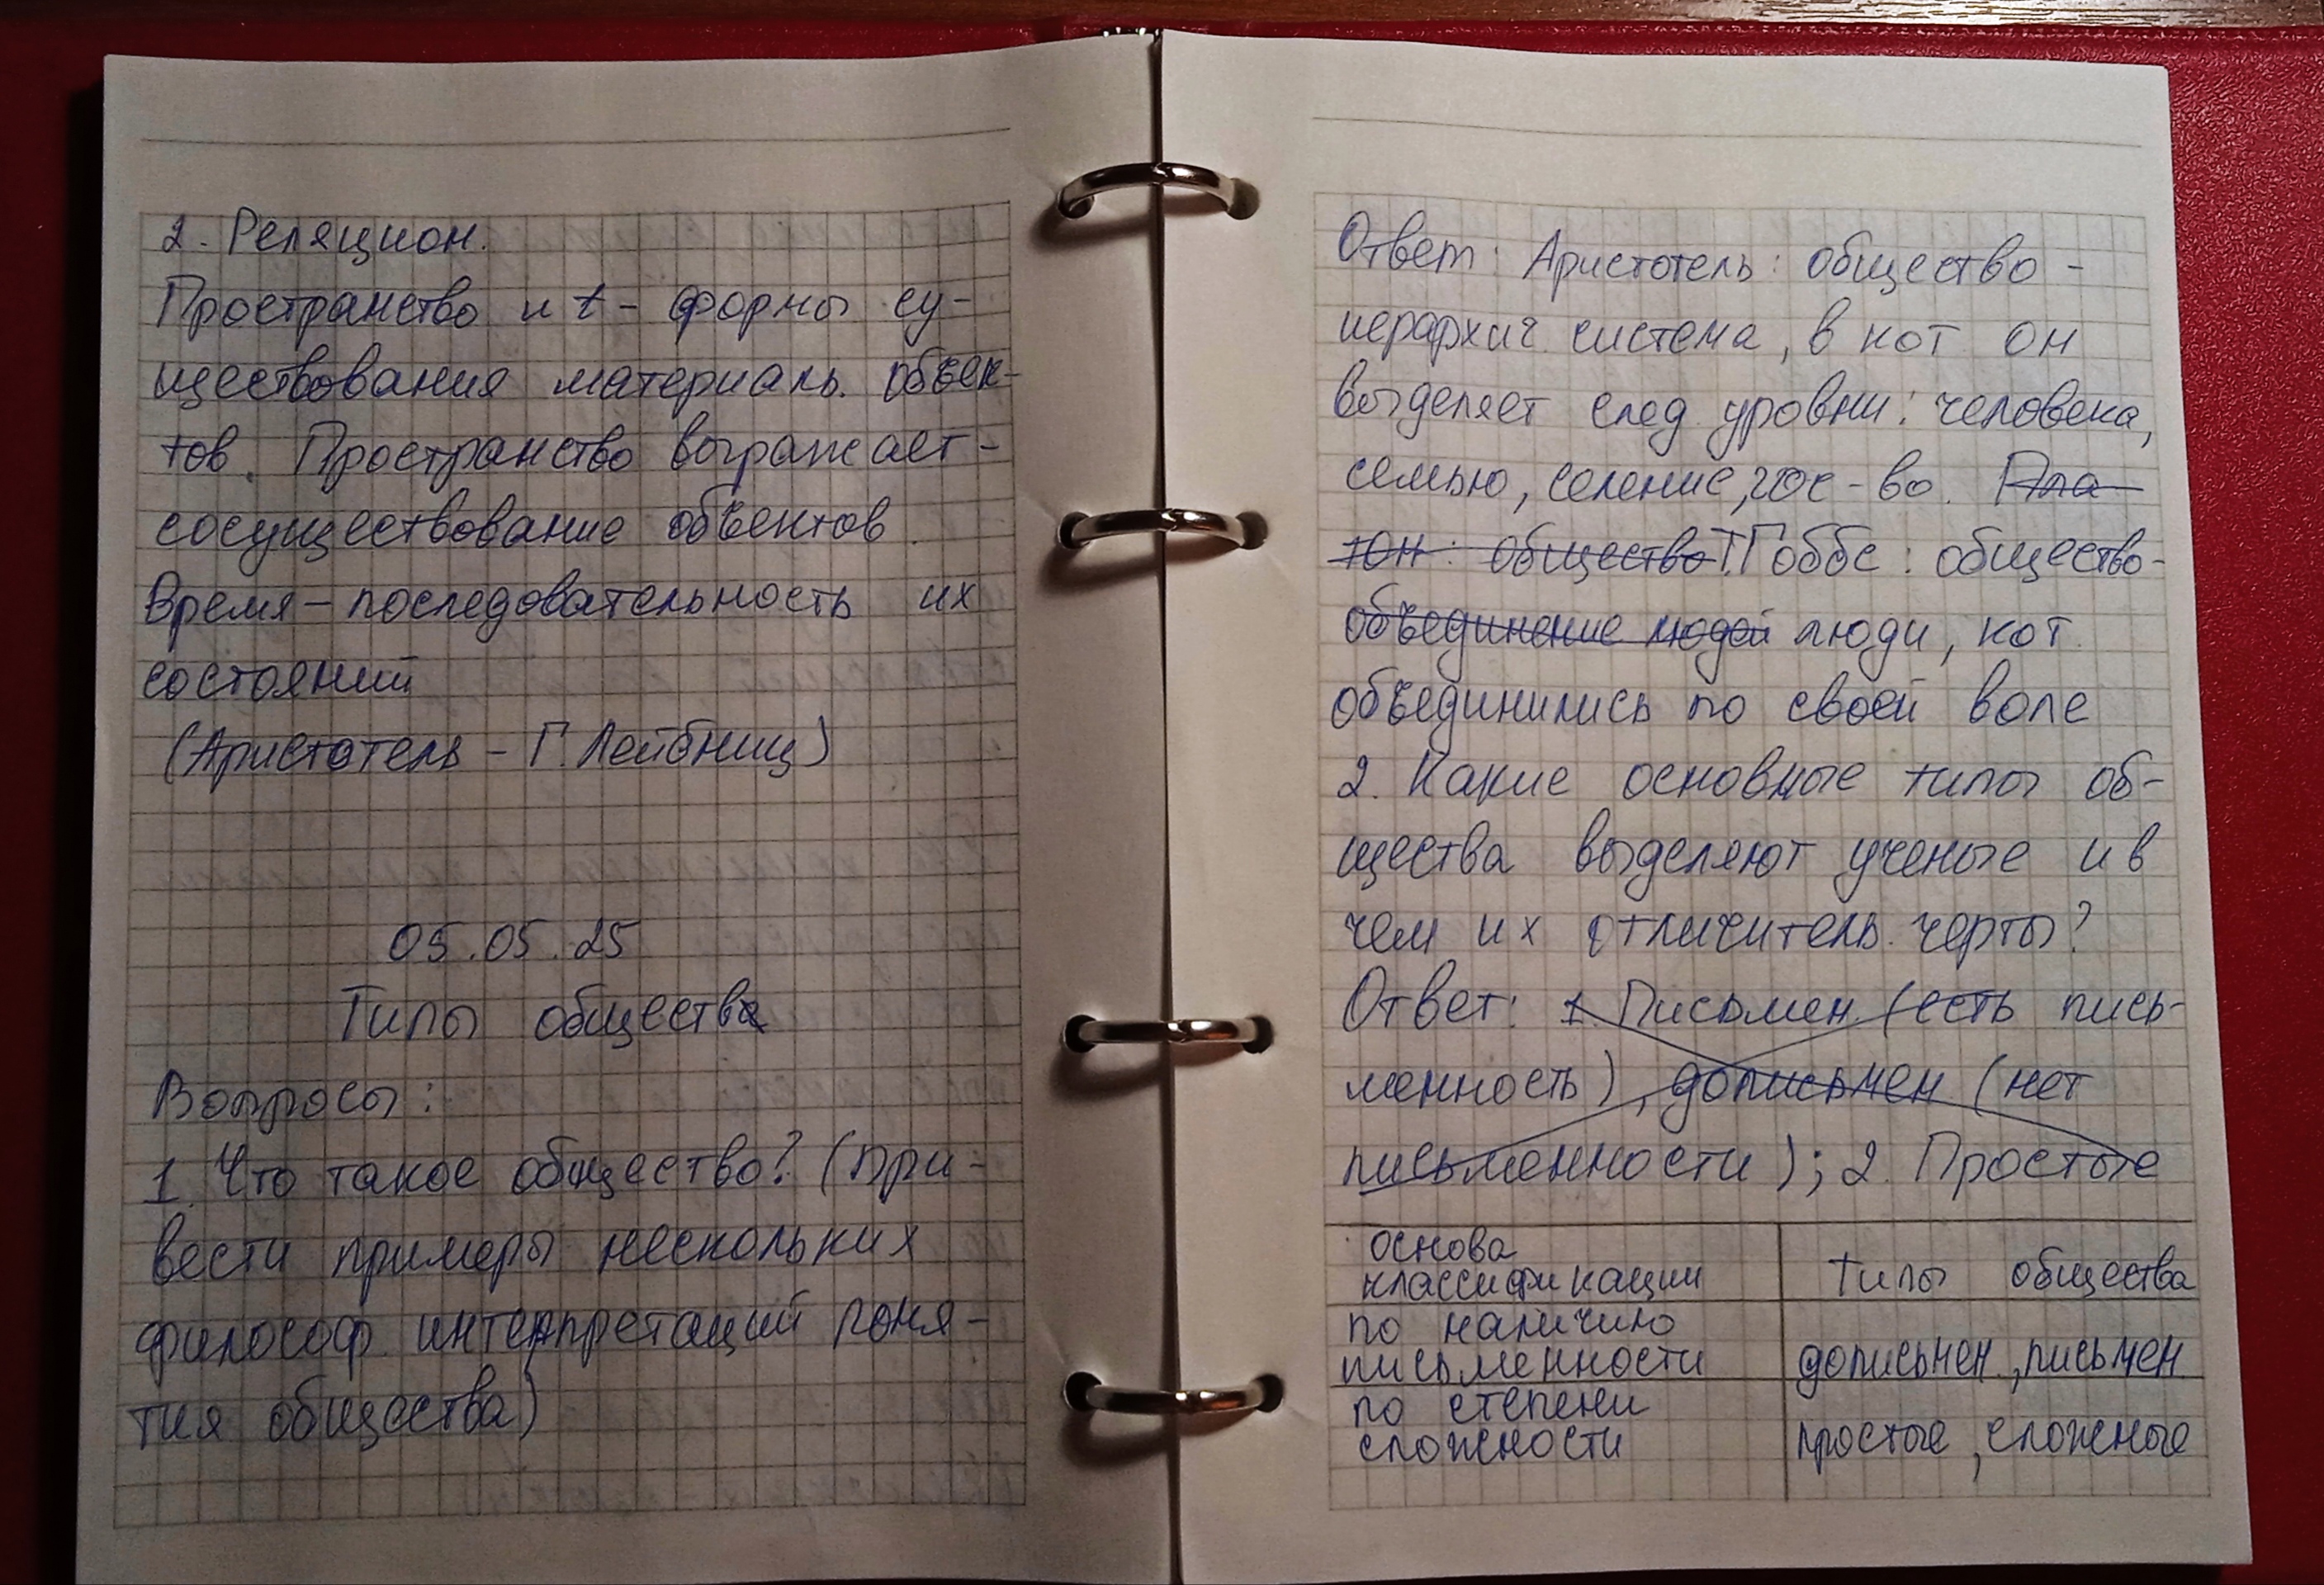 2. Реляцион.
Пространство и t - формы су-
ществования материаль. объек-
тов. Пространство выражает -
сосуществование объектов.
Время - последовательность их
состояний
(Аристотель - Г. Лейбниц)
05.05.25
Типы общества
Вопросы:
1. Что такое общество? (При-
вести примеры нескольких
философ. интерпретаций поня-
тия общества)
Ответ: Аристотель: общество -
иерархич. система, в кот он
выделяет след. уровни: человека,
семью, селение, гос-во. Пла-
тон: общество Т.Гоббс: общество-
объединение людей люди, кот.
объединились по своей воле
2. Какие основные типы об-
щества выделяют ученые и в
чем их отличитель. черты?
Ответ: 1. Письмен. (есть пись-
менность), дописьмен. (нет
письменности); 2. Простые
основа
классификации
типы общества
по наличию
письменности
дописьмен., письмен
по степени
сложности
простые, сложные